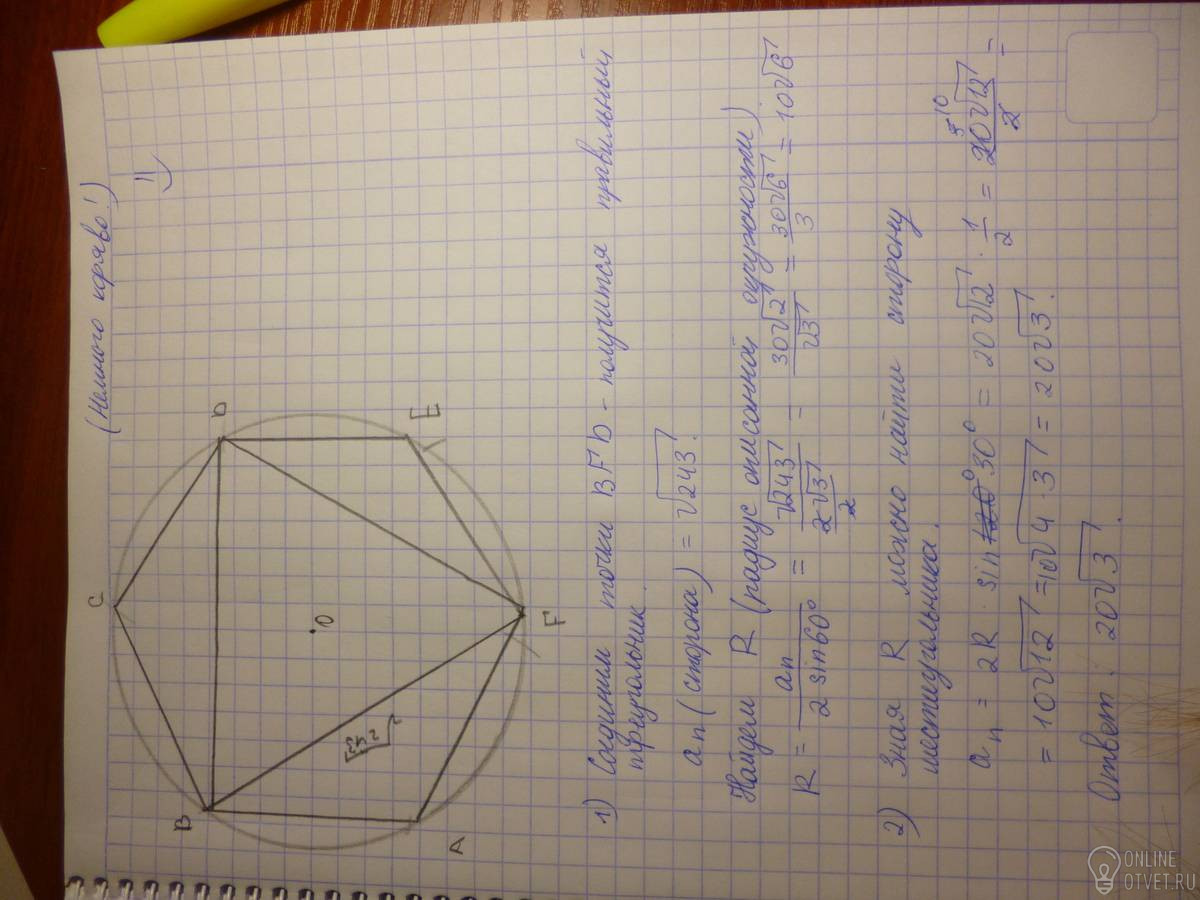 (Немного коряво!)
B
C
D
E
F
A
O
√243
1) Соединим точки BFD - получится правильный
треугольник.
aₙ (сторона) = √243.
Найдем R (радиус описанной окружности)
R = aₙ / (2 sin60°) = √243 / (2√3/2) = 30√2 / √3 = 30√6 / 3 = 10√6
2) Зная R можно найти сторону
шестиугольника.
aₙ = 2R · sin 30° = 20√12 · 1/2 = 20√12 / 2 =
= 10√12 = 10√4·3 = 20√3.
Ответ: 20√3.
ONLINE
OTVET.RU